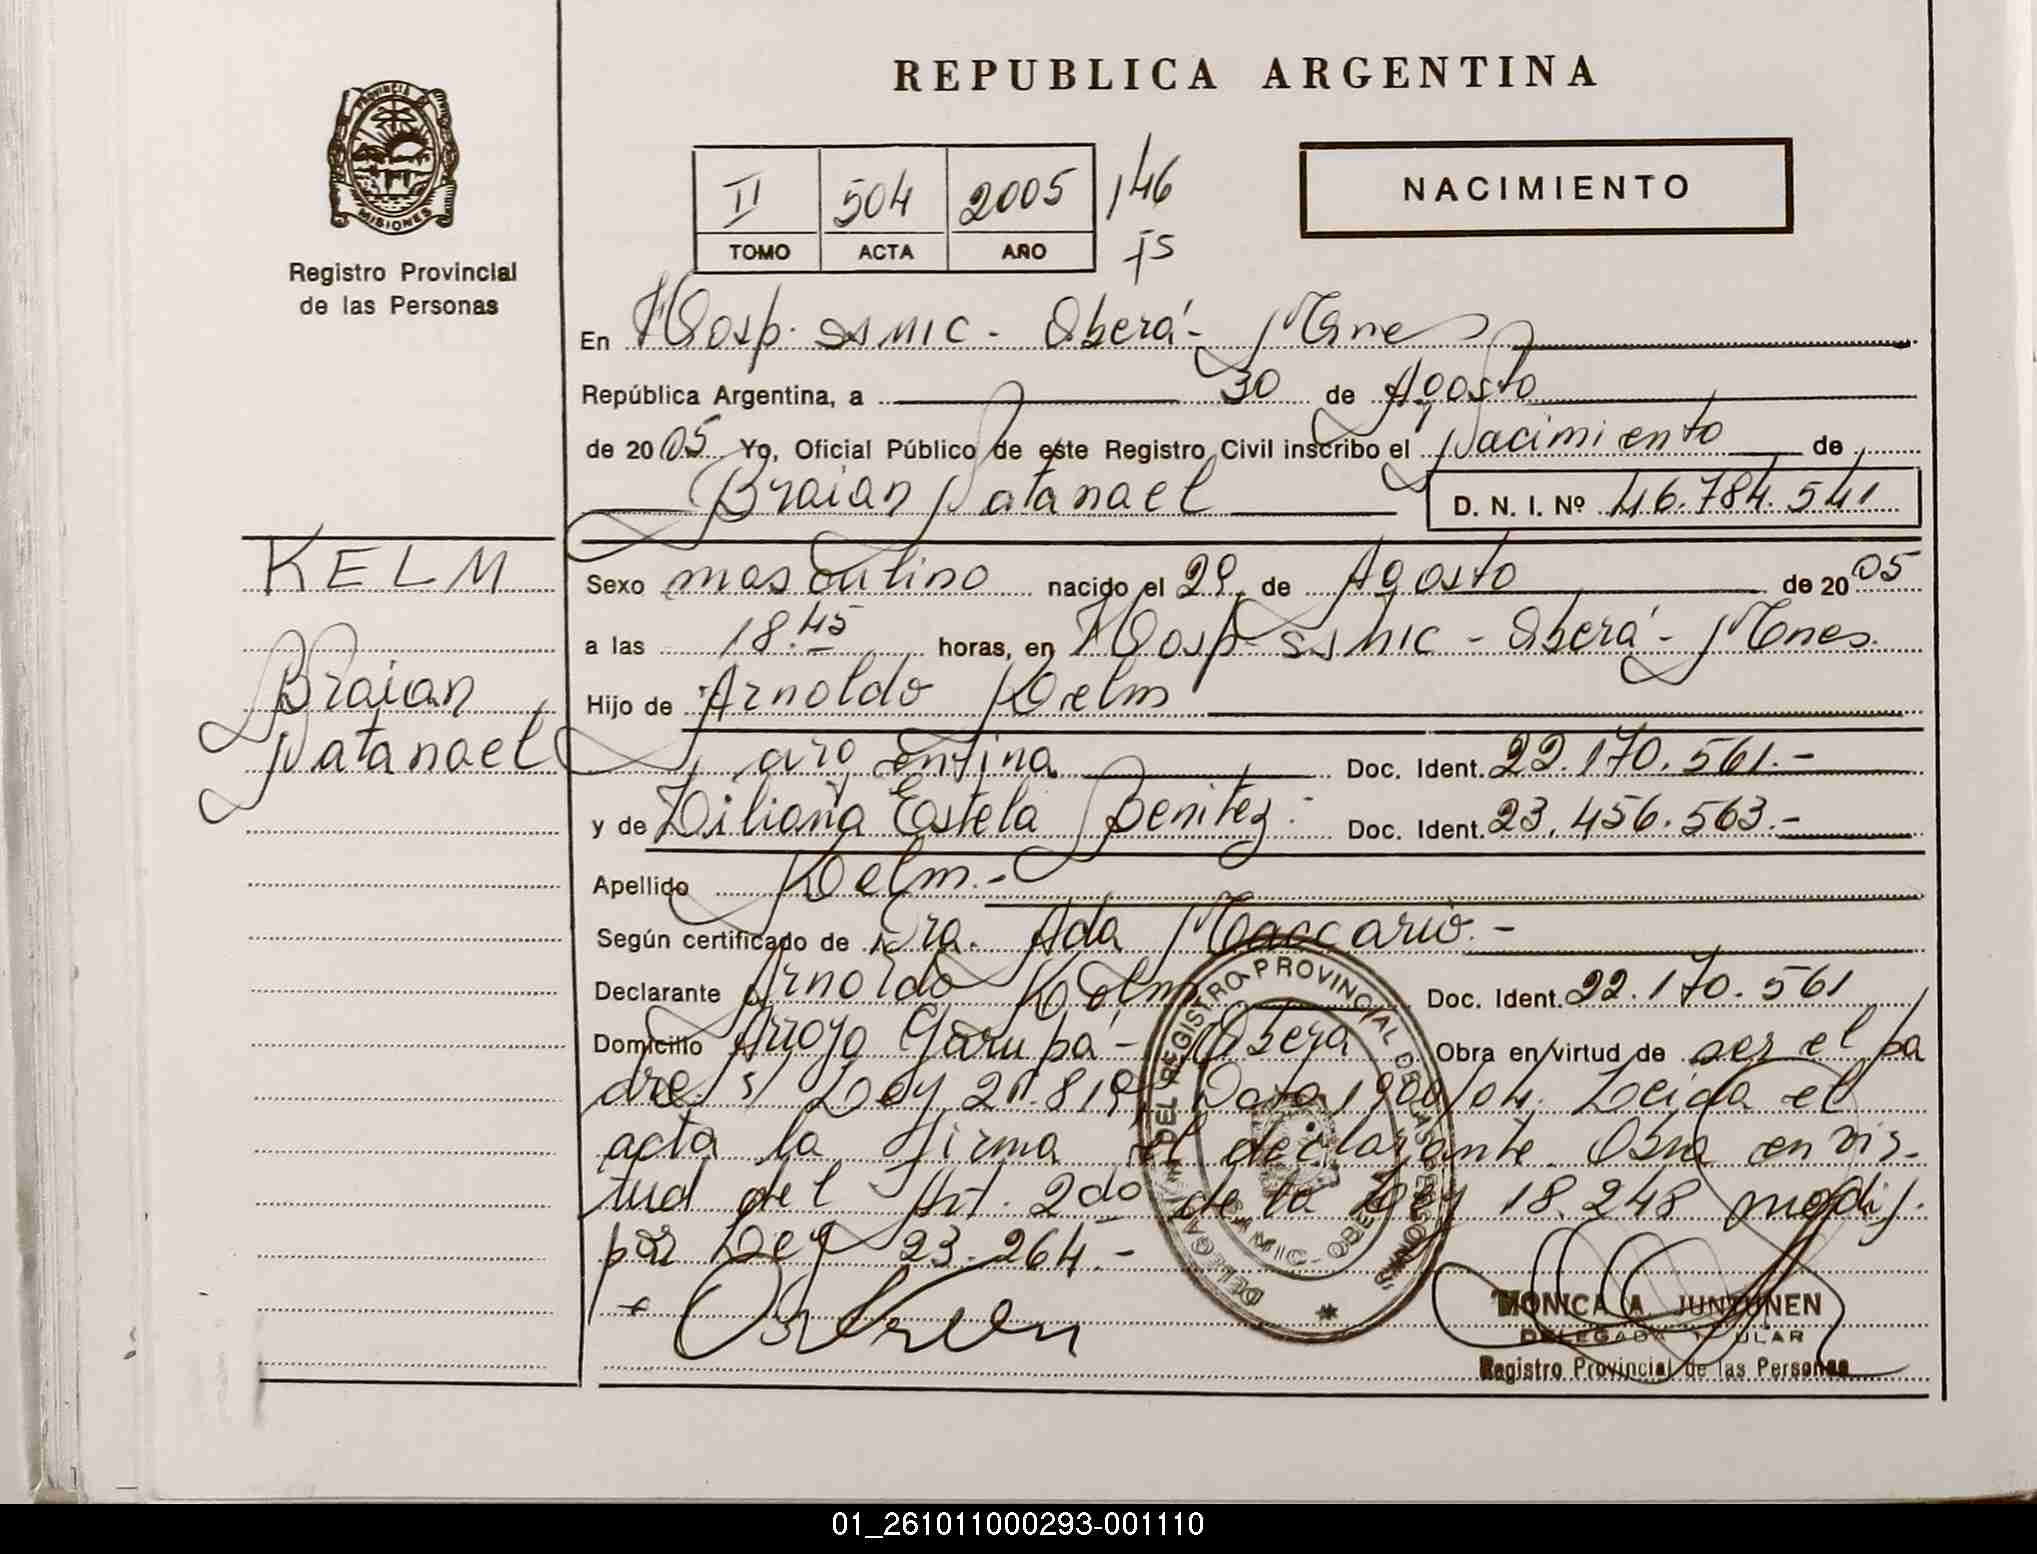 REPUBLICA ARGENTINA
PROVINCIA DE
MISIONES
Registro Provincial
de las Personas
II 504 2005 146
TOMO ACTA AÑO
NACIMIENTO
En Hosp. SAMIC - Oberá - Mnes
República Argentina, a 30 de Agosto
de 2005 Yo, Oficial Público de este Registro Civil inscribo el Nacimiento de
Braian Natanael D. N. I. Nº 46.784.541
KELM
Braian
Natanael
Sexo masculino nacido el 29 de Agosto de 2005
a las 18.45 horas, en Hosp. SAMIC - Oberá - Mnes.
Hijo de Arnoldo Kelm
argentina Doc. Ident. 22.170.561.-
y de Liliana Estela Benitez.- Doc. Ident. 23.456.563.-
Apellido Kelm.-
Según certificado de Dra. Ada Maccario.-
Declarante Arnoldo Kelm Doc. Ident. 22.170.561
Domicilio Arroyo Yarupá - Oberá Obra en virtud de ser el pa
dre. s/ Ley 1900/04. Leida el
acta la firma el declarante. Obra en vir-
tud del Art. 2do de la Ley 18.248 modif.
por Ley 23.264.-
DELEGACION DEL REGISTRO PROVINCIAL DE LAS PERSONAS
SAMIC - OBERA
MONICA A. JUNTUNEN
DELEGADA TITULAR
Registro Provincial de las Personas
01_261011000293-001110